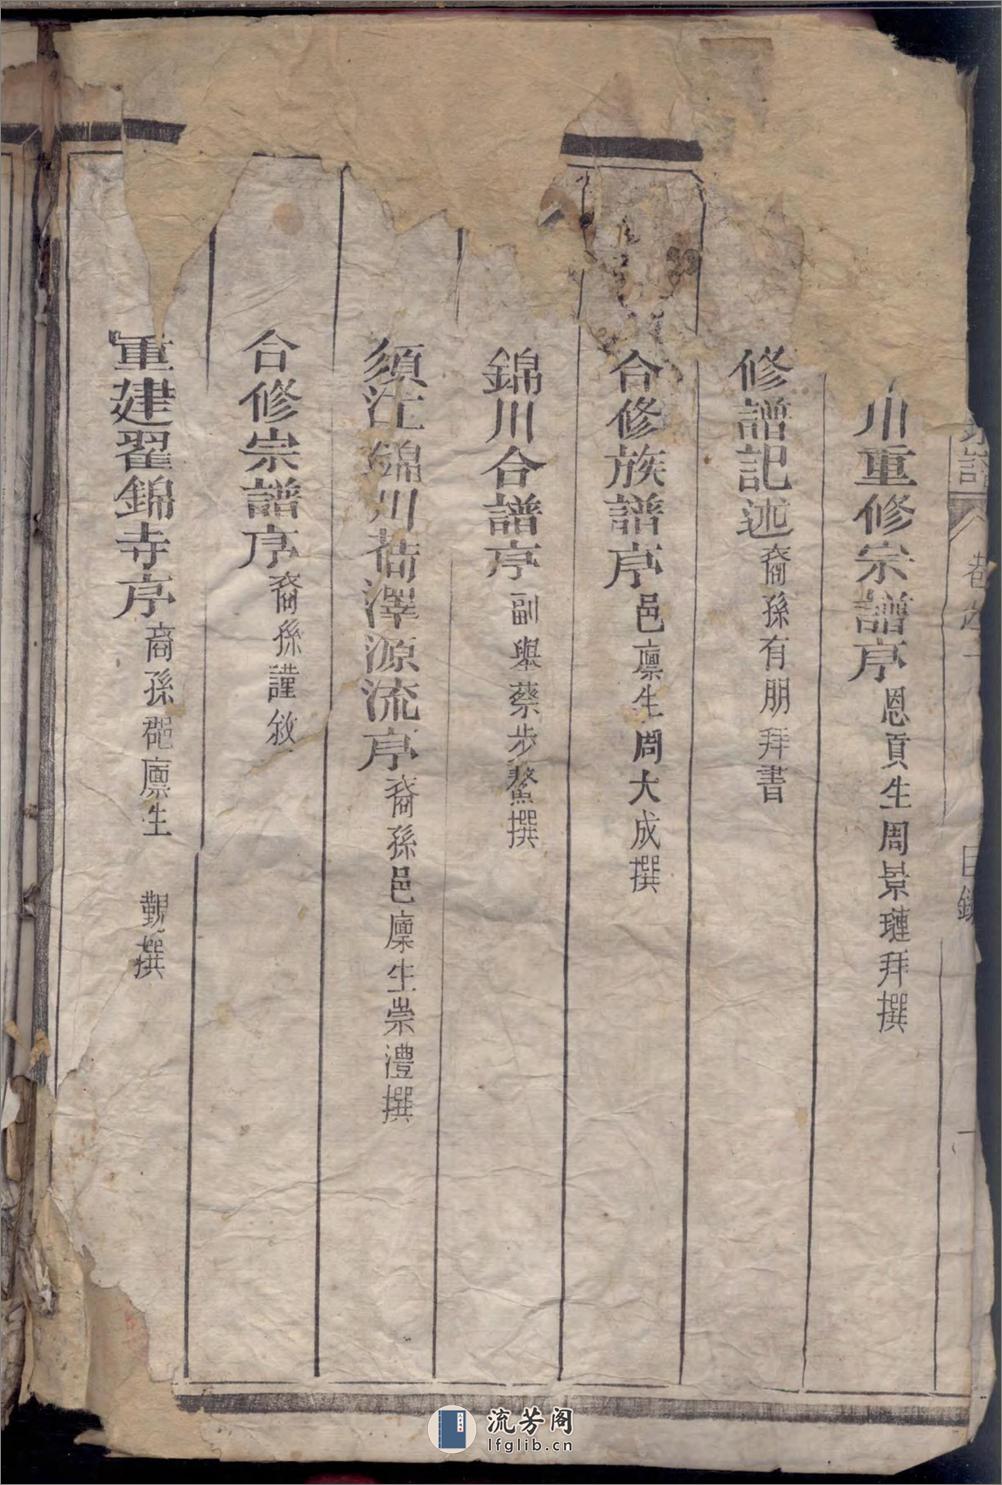 宗譜 卷之一 目錄 一
川重修宗譜序 恩貢生周景璉拜撰
修譜記述 裔孫有朋拜書
合修族譜序 邑廩生周大成撰
錦川合譜序 副舉蔡步鰲撰
須江錦川荷澤源流序 裔孫邑廩生崇澧撰
合修宗譜序 裔孫謹敘
重建翟錦寺序 裔孫郡廩生 觀撰
流芳阁
lfglib.cn